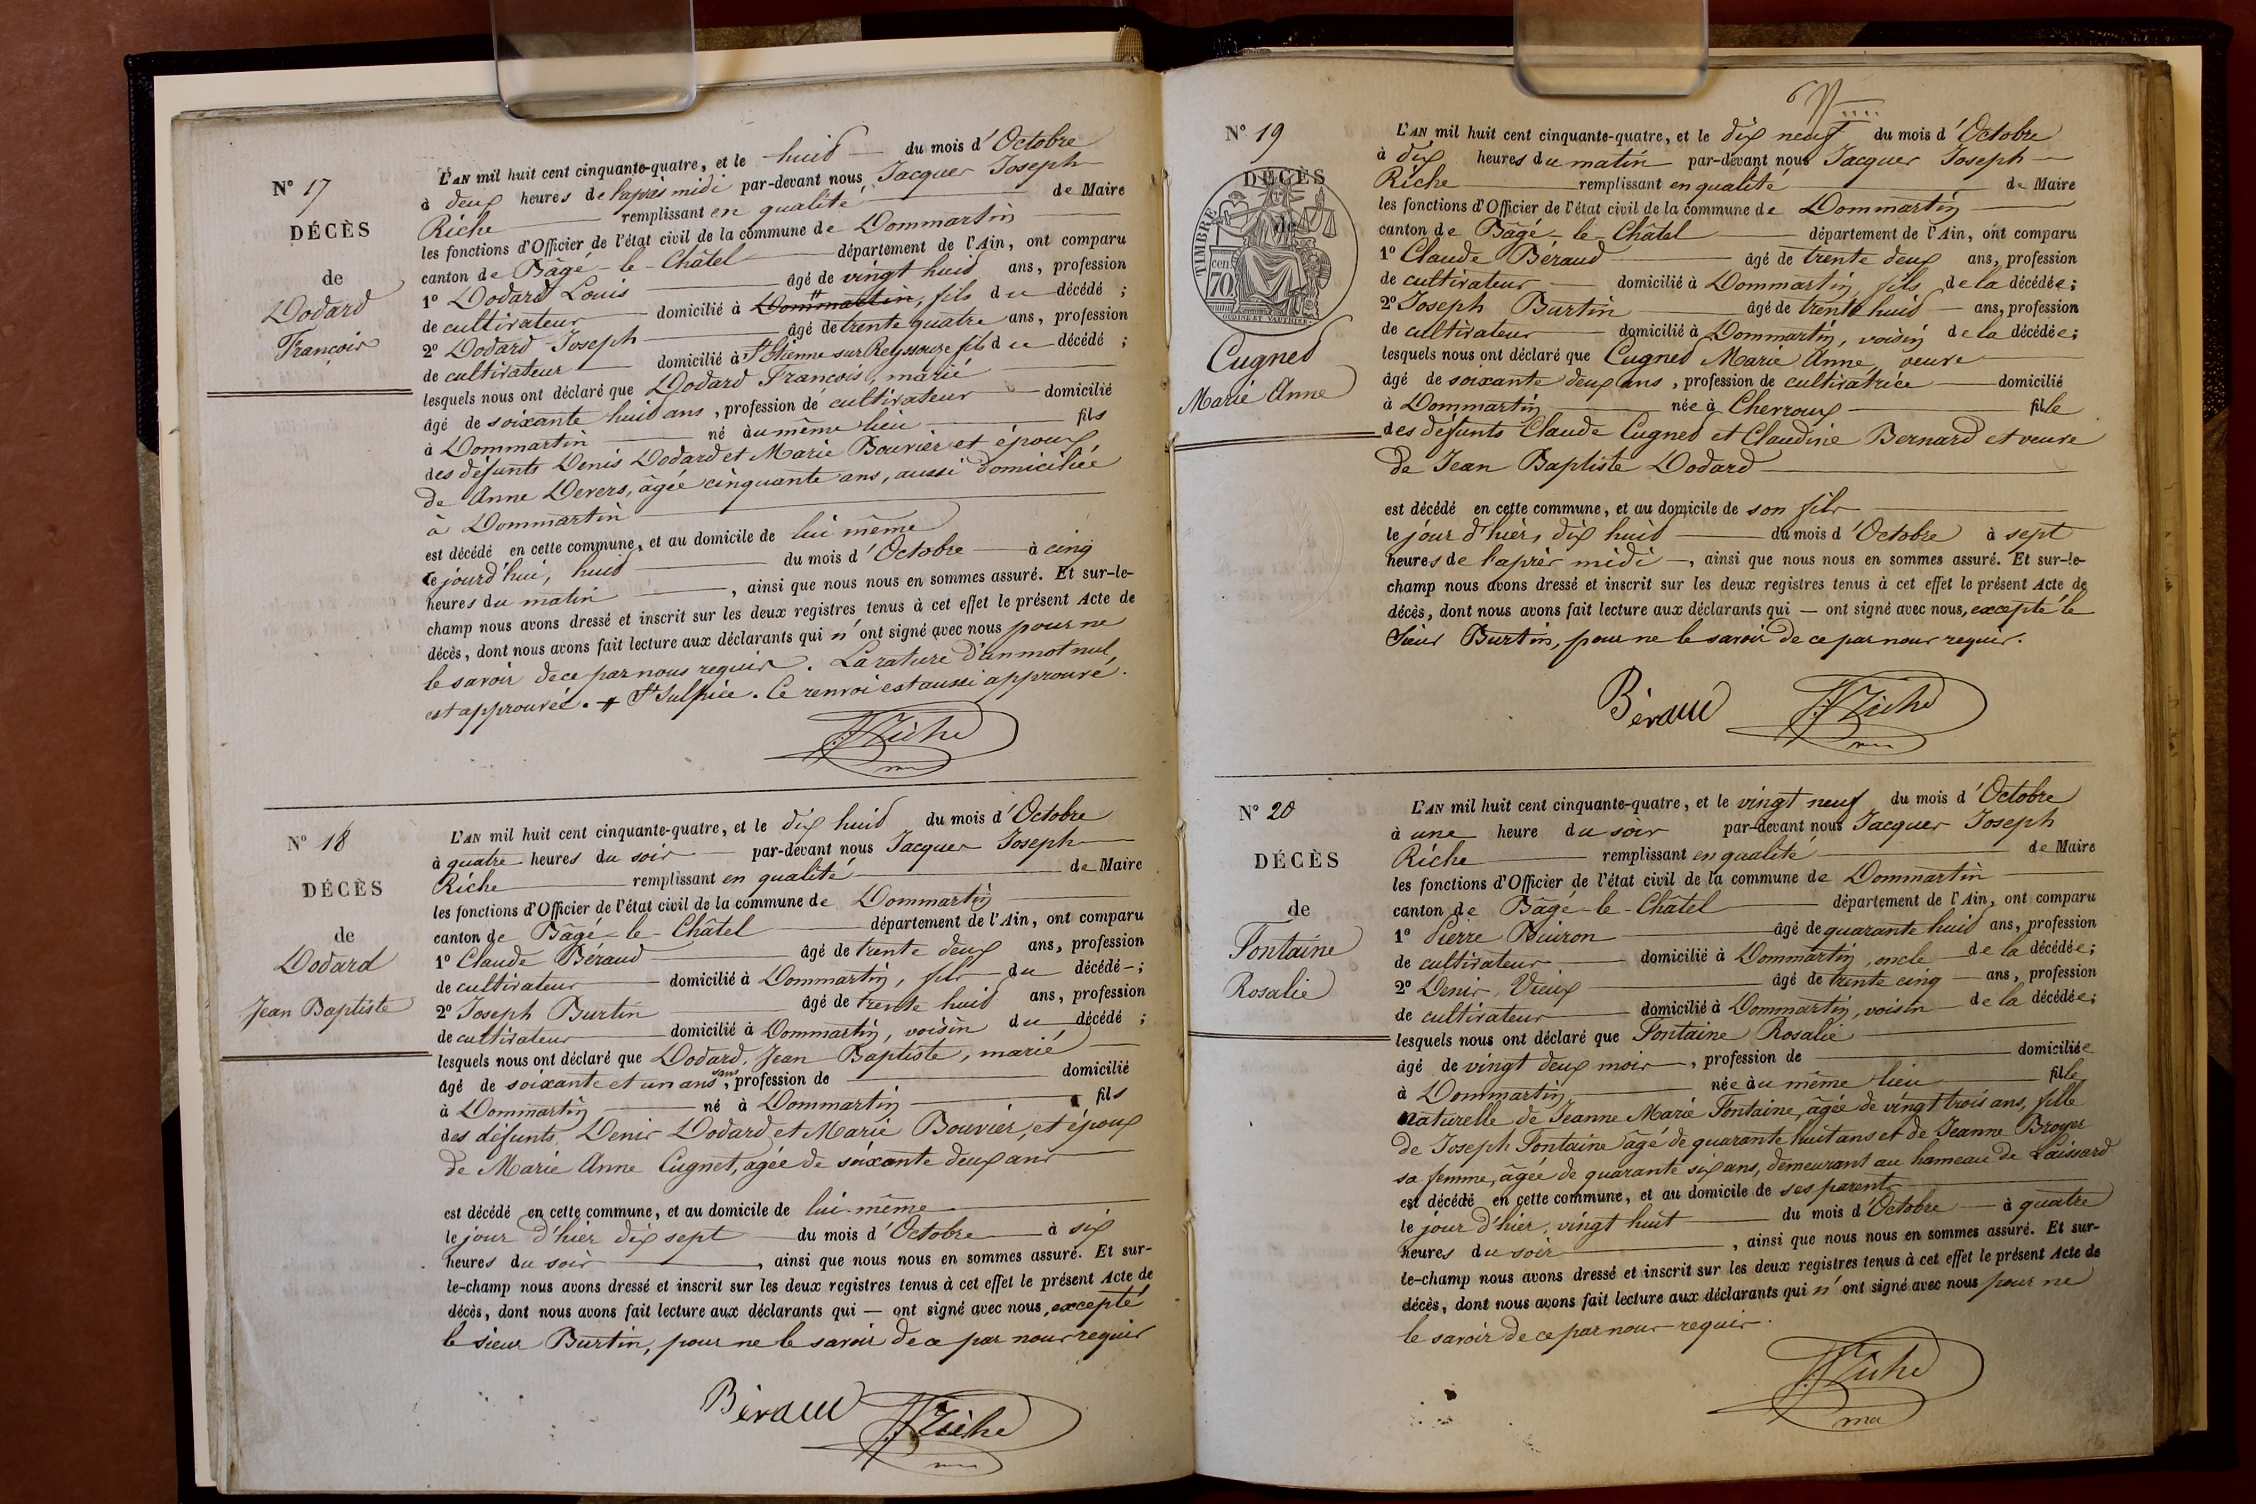 N° 17
DÉCÈS
de
Dodard
François
L'AN mil huit cent cinquante-quatre, et le huit du mois d'Octobre
à deux heures de l'après midi par-devant nous Jacques Joseph
Riche remplissant en qualité de Maire
les fonctions d'Officier de l'état civil de la commune de Dommartin
canton de Bâgé-le-Châtel département de l'Ain, ont comparu
1° Dodard Louis âgé de vingt huit ans, profession
de cultivateur domicilié à Dommartin, fils du décédé ;
2° Dodard Joseph âgé de trente quatre ans, profession
de cultivateur domicilié à St Etienne sur Reyssouze fils du décédé ;
lesquels nous ont déclaré que Dodard François, marié
âgé de soixante huit ans, profession de cultivateur domicilié
à Dommartin né au même lieu fils
des défunts Denis Dodard et Marie Bouvier et époux
de Anne Devers, âgée cinquante ans, aussi domiciliée
à Dommartin
est décédé en cette commune, et au domicile de lui même
ce jourd'hui, huit du mois d'Octobre à cinq
heures du matin, ainsi que nous nous en sommes assuré. Et sur-le-
champ nous avons dressé et inscrit sur les deux registres tenus à cet effet le présent Acte de
décès, dont nous avons fait lecture aux déclarants qui n'ont signé avec nous pour ne
le savoir de ce par nous requis. La rature d'un mot nul
est approuvée. # St Sulpice. Ce renvoi est aussi approuvé.
JJ Riche
N° 18
DÉCÈS
de
Dodard
Jean Baptiste
L'AN mil huit cent cinquante-quatre, et le dix huit du mois d'Octobre
à quatre heures du soir par-devant nous Jacques Joseph
Riche remplissant en qualité de Maire
les fonctions d'Officier de l'état civil de la commune de Dommartin
canton de Bâgé-le-Châtel département de l'Ain, ont comparu
1° Claude Béraud âgé de trente deux ans, profession
de cultivateur domicilié à Dommartin, fils du décédé ;
2° Joseph Burtin âgé de trente huit ans, profession
de cultivateur domicilié à Dommartin, voisin du décédé ;
lesquels nous ont déclaré que Dodard, Jean Baptiste, marié
âgé de soixante et un ans, sans profession de domicilié
à Dommartin né à Dommartin fils
des défunts, Denis Dodard et Marie Bouvier, et époux
de Marie Anne Cugnet, agée de soixante deux ans
est décédé en cette commune, et au domicile de lui-même
le jour d'hier dix sept du mois d'Octobre à six
heures du soir, ainsi que nous nous en sommes assuré. Et sur-
le-champ nous avons dressé et inscrit sur les deux registres tenus à cet effet le présent Acte de
décès, dont nous avons fait lecture aux déclarants qui — ont signé avec nous, excepté
le sieur Burtin, pour ne le savoir de ce par nous requis
Béraud JJ Riche
N° 19
DÉCÈS
de
TIMBRE
70 cent
Cugnet
Marie Anne
L'AN mil huit cent cinquante-quatre, et le dix neuf du mois d'Octobre
à dix heures du matin par-devant nous Jacques Joseph
Riche remplissant en qualité de Maire
les fonctions d'Officier de l'état civil de la commune de Dommartin
canton de Bâgé-le-Châtel département de l'Ain, ont comparu
1° Claude Béraud âgé de trente deux ans, profession
de cultivateur domicilié à Dommartin, fils de la décédée ;
2° Joseph Burtin âgé de trente huit ans, profession
de cultivateur domicilié à Dommartin, voisin de la décédée ;
lesquels nous ont déclaré que Cugnet Marie Anne, veuve
âgé de soixante deux ans, profession de cultivatrice domicilié
à Dommartin née à Chevroux fille
des défunts Claude Cugnet et Claudine Bernard et veuve
de Jean Baptiste Dodard
est décédé en cette commune, et au domicile de son fils
le jour d'hier, dix huit du mois d'Octobre à sept
heures de l'après midi, ainsi que nous nous en sommes assuré. Et sur-le-
champ nous avons dressé et inscrit sur les deux registres tenus à cet effet le présent Acte de
décès, dont nous avons fait lecture aux déclarants qui — ont signé avec nous, excepté le
Sieur Burtin, pour ne le savoir de ce par nous requis.
Béraud JJ Riche
N° 20
DÉCÈS
de
Fontaine
Rosalie
L'AN mil huit cent cinquante-quatre, et le vingt neuf du mois d'Octobre
à une heure du soir par-devant nous Jacques Joseph
Riche remplissant en qualité de Maire
les fonctions d'Officier de l'état civil de la commune de Dommartin
canton de Bâgé-le-Châtel département de l'Ain, ont comparu
1° Pierre âgé de quarante huit ans, profession
de cultivateur domicilié à Dommartin, oncle de la décédée ;
2° Denis Vieux âgé de trente cinq ans, profession
de cultivateur domicilié à Dommartin, voisin de la décédée ;
lesquels nous ont déclaré que Fontaine Rosalie
âgé de vingt deux mois, profession de domiciliée
à Dommartin née au même lieu fille
naturelle de Jeanne Marie Fontaine, âgée de vingt trois ans, fille
de Joseph Fontaine âgé de quarante huit ans et de Jeanne Broyer
sa femme, âgée de quarante six ans, demeurant au hameau de Loissard
est décédé en cette commune, et au domicile de ses parents
le jour d'hier, vingt huit du mois d'Octobre à quatre
heures du soir, ainsi que nous nous en sommes assuré. Et sur-
le-champ nous avons dressé et inscrit sur les deux registres tenus à cet effet le présent Acte de
décès, dont nous avons fait lecture aux déclarants qui n'ont signé avec nous pour ne
le savoir de ce par nous requis.
JJ Riche